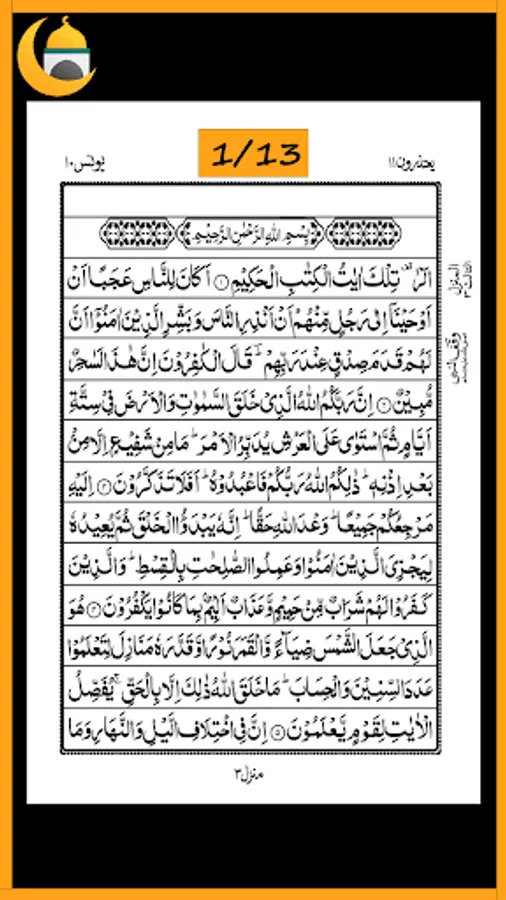 يعتذرون ١١
1/13
يونس ١٠
بِسْمِ اللهِ الرَّحْمٰنِ الرَّحِيْمِ
الٓرٰ ۫ تِلْكَ اٰيٰتُ الْكِتٰبِ الْحَكِيْمِ ۝١ اَكَانَ لِلنَّاسِ عَجَبًا اَنْ
اَوْحَيْنَاۤ اِلٰى رَجُلٍ مِّنْهُمْ اَنْ اَنْذِرِ النَّاسَ وَبَشِّرِ الَّذِيْنَ اٰمَنُوْۤا اَنَّ
لَهُمْ قَدَمَ صِدْقٍ عِنْدَ رَبِّهِمْ ؔ قَالَ الْكٰفِرُوْنَ اِنَّ هٰذَا لَسٰحِرٌ
مُّبِيْنٌ ۝٢ اِنَّ رَبَّكُمُ اللهُ الَّذِيْ خَلَقَ السَّمٰوٰتِ وَالْاَرْضَ فِيْ سِتَّةِ
اَيَّامٍ ثُمَّ اسْتَوٰى عَلَى الْعَرْشِ يُدَبِّرُ الْاَمْرَ ؕ مَا مِنْ شَفِيْعٍ اِلَّا مِنْۢ
بَعْدِ اِذْنِهٖ ؕ ذٰلِكُمُ اللهُ رَبُّكُمْ فَاعْبُدُوْهُ ؕ اَفَلَا تَذَكَّرُوْنَ ۝٣ اِلَيْهِ
مَرْجِعُكُمْ جَمِيْعًا ؕ وَعْدَ اللهِ حَقًّا ؕ اِنَّهٗ يَبْدَؤُا الْخَلْقَ ثُمَّ يُعِيْدُهٗ
لِيَجْزِيَ الَّذِيْنَ اٰمَنُوْا وَعَمِلُوا الصّٰلِحٰتِ بِالْقِسْطِ ؕ وَالَّذِيْنَ
كَفَرُوْا لَهُمْ شَرَابٌ مِّنْ حَمِيْمٍ وَّعَذَابٌ اَلِيْمٌۢ بِمَا كَانُوْا يَكْفُرُوْنَ ۝٤ هُوَ
الَّذِيْ جَعَلَ الشَّمْسَ ضِيَآءً وَّالْقَمَرَ نُوْرًا وَّقَدَّرَهٗ مَنَازِلَ لِتَعْلَمُوْا
عَدَدَ السِّنِيْنَ وَالْحِسَابَ ؕ مَا خَلَقَ اللهُ ذٰلِكَ اِلَّا بِالْحَقِّ ۚ يُفَصِّلُ
الْاٰيٰتِ لِقَوْمٍ يَّعْلَمُوْنَ ۝٥ اِنَّ فِي اخْتِلَافِ الَّيْلِ وَالنَّهَارِ وَمَا
منزل ٣